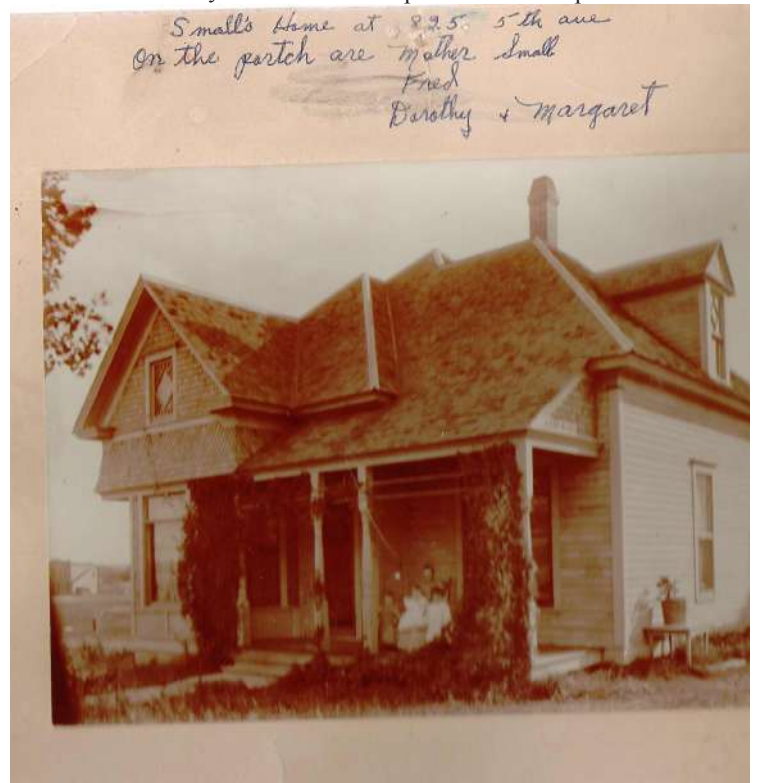 Small's Home at 825 5th ave
On the portch are Mother Small
Fred
Dorothy + Margaret